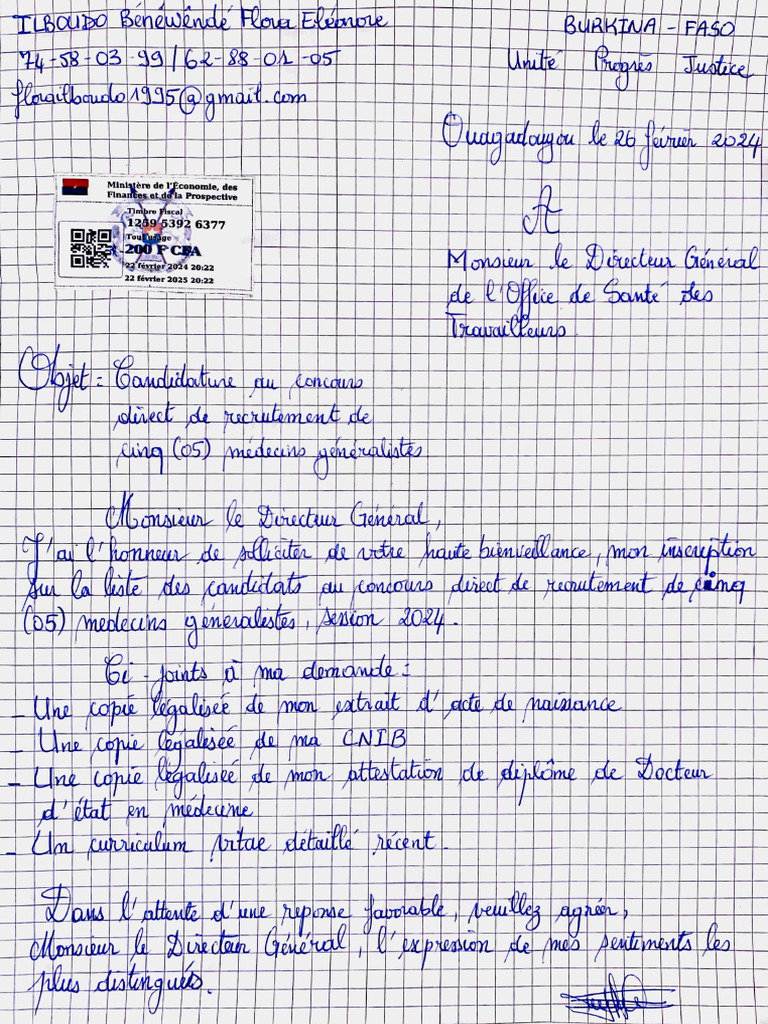 ILBOUDO Bénéwêndé Flora Eléonore
74-58-03-99/62-88-01-05
florailboudo1995@gmail.com
BURKINA-FASO
Unité Progrès Justice
Ouagadougou le 26 février 2024
Ministère de l'Économie, des
Finances et de la Prospective
Timbre Fiscal
1259 5392 6377
Tout usage
200 F CFA
22 février 2024 20:22
22 février 2025 20:22
A
Monsieur le Directeur Général
de l'Office de Santé des
Travailleurs
Objet: Candidature au concours
direct de recrutement de
cinq (05) médecins généralistes
Monsieur le Directeur Général,
J'ai l'honneur de solliciter de votre haute bienveillance, mon inscription
sur la liste des candidats au concours direct de recrutement de cinq
(05) medecins généralistes, session 2024.
Ci-joints à ma demande:
- Une copie légalisée de mon extrait d'acte de naissance
- Une copie légalisée de ma CNIB
- Une copie légalisée de mon attestation de diplôme de Docteur
d'état en médecine
- Un curriculum vitae détaillé récent.
Dans l'attente d'une reponse favorable, veuillez agréer,
Monsieur le Directeur Général, l'expression de mes sentiments les
plus distingués.